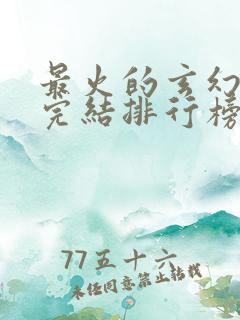 最火的玄幻
完结排行榜
77五十六
未经同意禁止转载